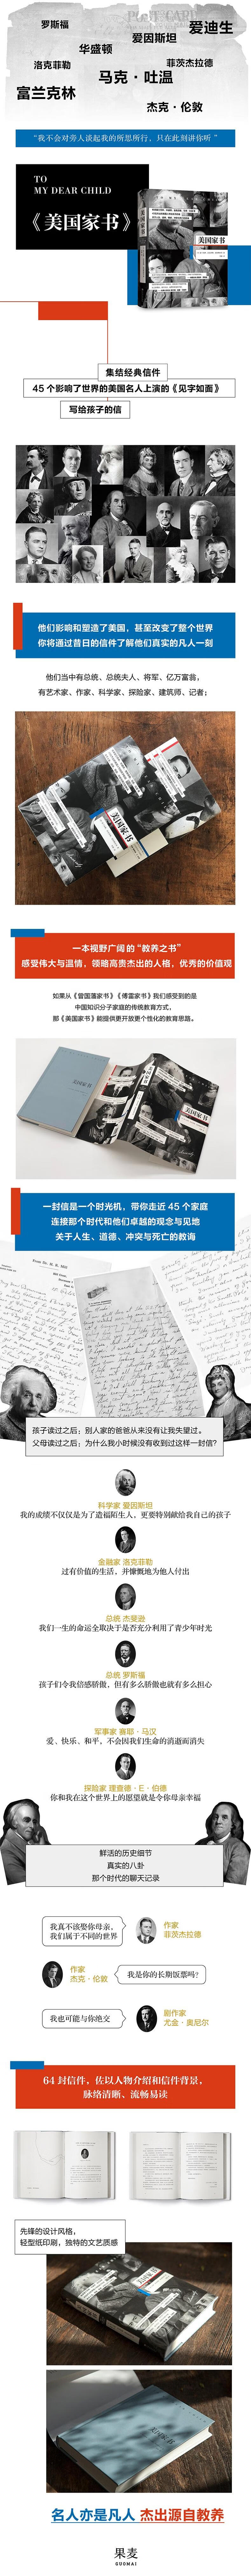 罗斯福
爱迪生
华盛顿
爱因斯坦
洛克菲勒
菲茨杰拉德
马克·吐温
富兰克林
杰克·伦敦
“我不会对旁人谈起我的所思所行，只在此刻讲你听”
TO
MY DEAR CHILD
《美国家书》
美国家书
集结经典信件
45个影响了世界的美国名人上演的《见字如面》
写给孩子的信
他们影响和塑造了美国，甚至改变了整个世界
你将通过昔日的信件了解他们真实的凡人一刻
他们当中有总统、总统夫人、将军、亿万富翁，
有艺术家、作家、科学家、探险家、建筑师、记者；
美国家书
一本视野广阔的“教养之书”
感受伟大与温情，领略高贵杰出的人格，优秀的价值观
如果从《曾国藩家书》《傅雷家书》我们感受到的是
中国知识分子家庭的传统教育方式，
那《美国家书》能提供更开放更个性化的教育思路。
美国家书
一封信是一个时光机，带你走近45个家庭
连接那个时代和他们卓越的观念与见地
关于人生、道德、冲突与死亡的教诲
孩子读过之后：别人家的爸爸从来没有让我失望过。
父母读过之后：为什么我小时候没有收到过这样一封信？
科学家 爱因斯坦
我的成绩不仅仅是为了造福陌生人，更要特别献给我自己的孩子
金融家 洛克菲勒
过有价值的生活，并慷慨地为他人付出
总统 杰斐逊
我们一生的命运全取决于是否充分利用了青少年时光
总统 罗斯福
孩子们令我倍感骄傲，但有多么骄傲也就有多么担心
军事家 赛耶·马汉
爱、快乐、和平，不会因我们生命的消逝而消失
探险家 理查德·E·伯德
你和我在这个世界上的愿望就是令你母亲幸福
鲜活的历史细节
真实的八卦
那个时代的聊天记录
我真不该娶你母亲，
我们属于不同的世界
作家
菲茨杰拉德
作家
杰克·伦敦
我是你的长期饭票吗？
我也可能与你绝交
剧作家
尤金·奥尼尔
64封信件，佐以人物介绍和信件背景，
脉络清晰、流畅易读
先锋的设计风格，
轻型纸印刷，独特的文艺质感
美国家书
名人亦是凡人 杰出源自教养
果麦
GUOMAI